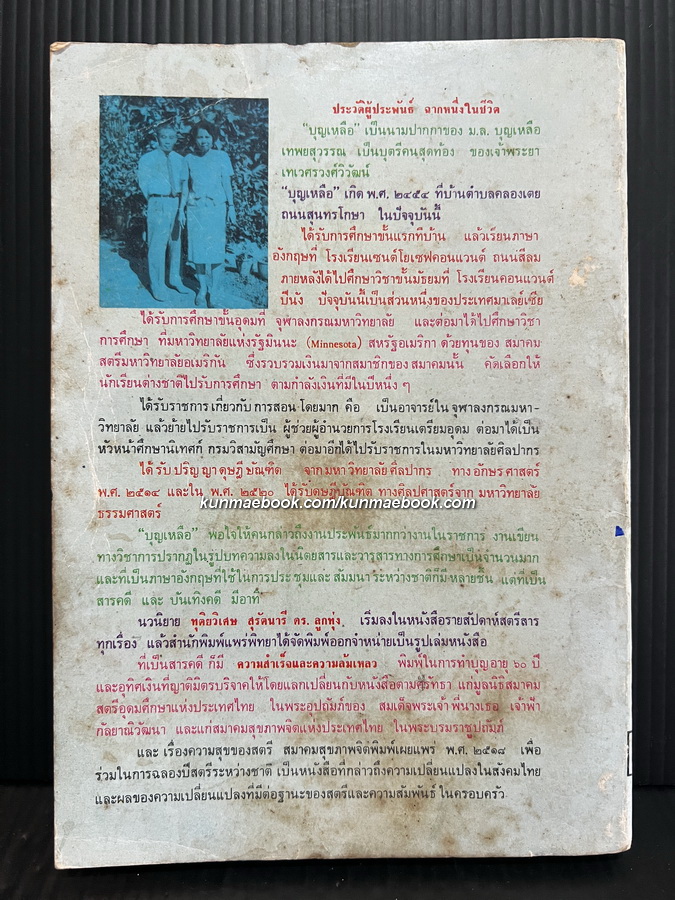 ประวัติผู้ประพันธ์ ฉากหนึ่งในชีวิต
"บุญเหลือ" เป็นนามปากกาของ ม.ล. บุญเหลือ
เทพยสุวรรณ เป็นบุตรีคนสุดท้อง ของเจ้าพระยา
เทเวศรวงศ์วิวัฒน์
"บุญเหลือ" เกิด พ.ศ. ๒๔๕๔ ที่บ้านตำบลคลองเตย
ถนนสุนทรโกษา ในปัจจุบันนี้
ได้รับการศึกษาชั้นแรกที่บ้าน แล้วเรียนภาษา
อังกฤษที่ โรงเรียนเซนต์โยเซฟคอนแวนต์ ถนนสีลม
ภายหลังได้ไปศึกษาวิชาชั้นมัธยมที่ โรงเรียนคอนแวนต์
ปีนัง ปัจจุบันนี้เป็นส่วนหนึ่งของประเทศมาเลย์เซีย
ได้รับการศึกษาขั้นอุดมที่ จุฬาลงกรณมหาวิทยาลัย และต่อมาได้ไปศึกษาวิชา
การศึกษา ที่มหาวิทยาลัยแห่งรัฐมินนะ (Minnesota) สหรัฐอเมริกา ด้วยทุนของ สมาคม
สตรีมหาวิทยาลัยอเมริกัน ซึ่งรวบรวมเงินมาจากสมาชิกของสมาคมนั้น คัดเลือกให้
นักเรียนต่างชาติไปรับการศึกษา ตามกำลังเงินที่มีในปีหนึ่ง ๆ
ได้รับราชการเกี่ยวกับการสอนโดยมาก คือ เป็นอาจารย์ในจุฬาลงกรณมหา-
วิทยาลัย แล้วย้ายไปรับราชการเป็น ผู้ช่วยผู้อำนวยการโรงเรียนเตรียมอุดม ต่อมาได้เป็น
หัวหน้าศึกษานิเทศก์ กรมวิสามัญศึกษา ต่อมาอีกได้ไปรับราชการในมหาวิทยาลัยศิลปากร
ได้รับปริญญาดุษฎีบัณฑิต จากมหาวิทยาลัยศิลปากร ทางอักษรศาสตร์
พ.ศ. ๒๕๑๔ และใน พ.ศ. ๒๕๒๐ ได้รับดุษฎีบัณฑิต ทางศิลปศาสตร์จาก มหาวิทยาลัย
kunmaebook.com / kunmaebook.com
ธรรมศาสตร์
"บุญเหลือ" พอใจให้คนกล่าวถึงงานประพันธ์มากกว่างานในราชการ งานเขียน
ทางวิชาการปรากฏในรูปบทความลงในนิตยสารและวารสารทางการศึกษาเป็นจำนวนมาก
และที่เป็นภาษาอังกฤษที่ใช้ในการประชุมและสัมมนาระหว่างชาติก็มีหลายชิ้น แต่ที่เป็น
สารคดี และ บันเทิงคดี มีอาทิ
นวนิยาย ทุติยวิเศษ สุรัตนารี ดร. ลูกทุ่ง เริ่มลงในหนังสือรายสัปดาห์สตรีสาร
ทุกเรื่อง แล้วสำนักพิมพ์แพร่พิทยาได้จัดพิมพ์ออกจำหน่ายเป็นรูปเล่มหนังสือ
ที่เป็นสารคดี ก็มี ความสำเร็จและความล้มเหลว พิมพ์ในการทำบุญอายุ ๖๐ ปี
และอุทิศเงินที่ญาติมิตรบริจาคให้โดยแลกเปลี่ยนกับหนังสือตามศรัทธา แก่มูลนิธิสมาคม
สตรีอุดมศึกษาแห่งประเทศไทย ในพระอุปถัมภ์ของ สมเด็จพระเจ้าพี่นางเธอ เจ้าฟ้า
กัลยาณิวัฒนา และแก่สมาคมสุขภาพจิตแห่งประเทศไทย ในพระบรมราชูปถัมภ์
และ เรื่องความสุขของสตรี สมาคมสุขภาพจิตพิมพ์เผยแพร่ พ.ศ. ๒๕๑๘ เพื่อ
ร่วมในการฉลองปีสตรีระหว่างชาติ เป็นหนังสือที่กล่าวถึงความเปลี่ยนแปลงในสังคมไทย
และผลของความเปลี่ยนแปลงที่มีต่อฐานะของสตรีและความสัมพันธ์ในครอบครัว